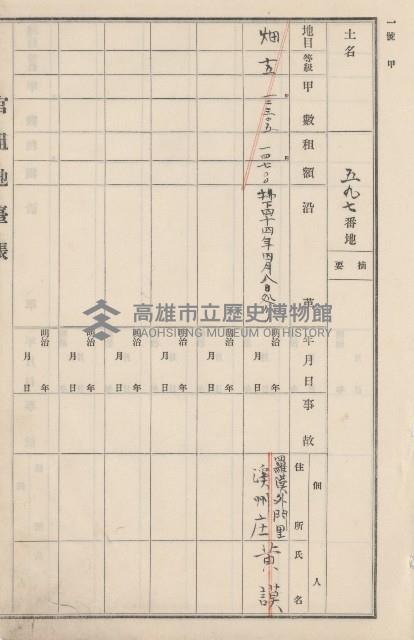 一號 甲
土名
五九七番地
摘要
地目 等級 甲數 租額 沿革 年月日 事故
畑 五 一三三〇五 一四七〇〇
拂下 四十四年四月八日
明治 年 月 日
明治 年 月 日
明治 年 月 日
明治 年 月 日
明治 年 月 日
個人
住所 氏名
羅漢外門里
溪州庄 黃謨
官租地臺帳
高雄市立歷史博物館
KAOHSIUNG MUSEUM OF HISTORY